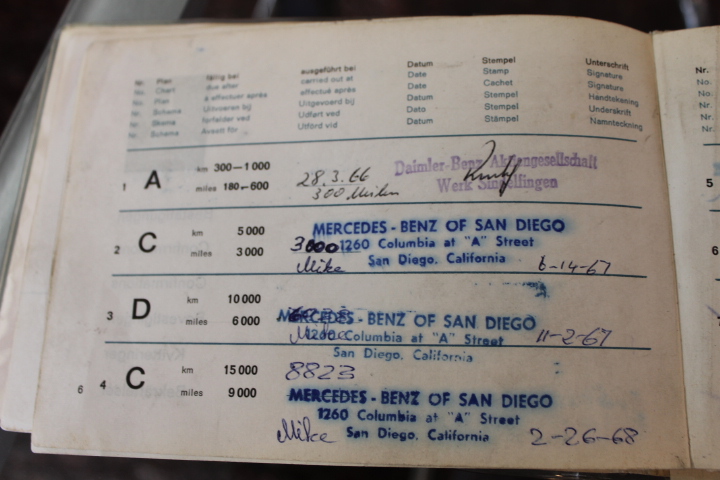 Nr. Plan fällig bei ausgeführt bei Datum Stempel Unterschrift Nr.
No. Chart due after carried out at Date Stamp Signature No.
No. Plan à effectuer après effectué après Date Cachet Signature
Nr. Schema Uitvoeren bij Uitgevoerd bij Datum Stempel Handtekening Nr.
Nr. Skema forfalder ved Udført ved Dato Stempel Underskrift
Nr. Schema Avsett för Utförd vid Datum Stämpel Namnteckning Nr.
1 A km 300–1 000 28.3.66 Daimler-Benz Aktiengesellschaft 5
miles 180–600 300 Meilen Werk Sindelfingen
MERCEDES - BENZ OF SAN DIEGO
2 C km 5 000 3000 1260 Columbia at "A" Street 6
miles 3 000 Mike San Diego, California 6-14-67
3 D km 10 000 MERCEDES - BENZ OF SAN DIEGO
miles 6 000 Mike 1260 Columbia at "A" Street 11-2-67
San Diego, California
6 4 C km 15 000 8823
miles 9 000 MERCEDES - BENZ OF SAN DIEGO
1260 Columbia at "A" Street
Mike San Diego, California 2-26-68